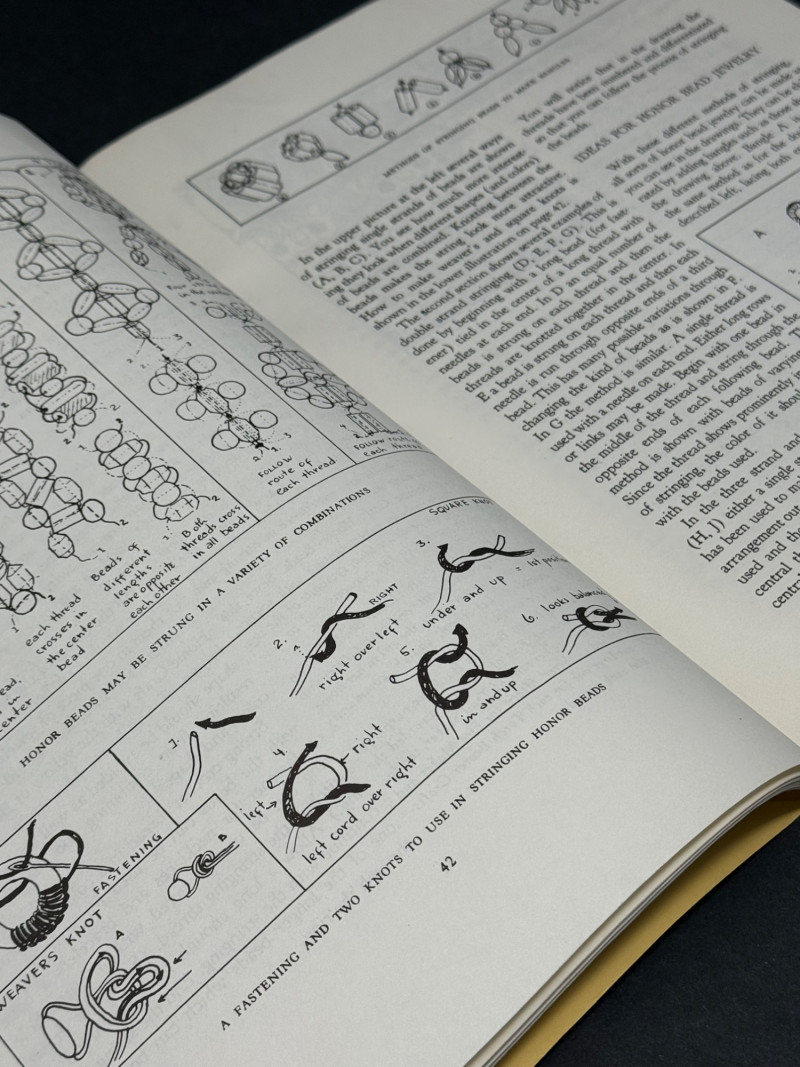 FOLLOW
route of
each thread
FOLLOW route
each thread
Both
threads cross
in all beads
Beads of
different
lengths
are opposite
each other
each thread
crosses in
the center
bead
HONOR BEADS MAY BE STRUNG IN A VARIETY OF COMBINATIONS
SQUARE
1.
2.
RIGHT
right over left
3.
under and up = 1st
4.
right
left
left cord over right
5.
in and up
6. looks
FASTENING
WEAVERS KNOT
A
B
A FASTENING AND TWO KNOTS TO USE IN STRINGING HONOR BEADS
42
METHODS OF STRINGING BEADS TO MAKE BANGLES
In the upper picture at the left several ways
of stringing single strands of beads are shown
(A, B, C). You see how much more interest-
ing they look when different shapes (and colors)
of beads are combined. Knotting between the
beads makes the string look more attractive.
How to make weaver's and square knots is
shown in the lower illustration on page 42.
The second section shows several examples of
double strand stringing (D, E, F, G). This is
done by beginning with a long bead (for fast-
ener) tied in the center of a long thread with
needles at each end. In D an equal number of
beads is strung on each thread and then the
threads are knotted together in the center. In
E a bead is strung on each thread and then each
needle is run through opposite ends of a third
bead. This has many possible variations through
changing the kind of beads as is shown in F.
In G the method is similar. A single thread is
used with a needle on each end. Either long rows
or links may be made. Begin with one bead in
the middle of the thread and string through the
opposite ends of each following bead.
method is shown with beads of varying
Since the thread shows prominently
of stringing, the color of it should
with the beads used.
In the three strand and
(H, J) either a single
has been used to
arrangement
used and
central
You will notice that in the drawing the
threads have been numbered and differentiated
so that you can follow the process of stringing
the beads.
IDEAS FOR HONOR BEAD JEWELRY
With these different methods of stringing,
all sorts of honor bead jewelry can be made
you can see in the drawings. They can be
by adding bangles such as those
the drawing above. Bangle A is
the same method as for the
described left, lacing both
A